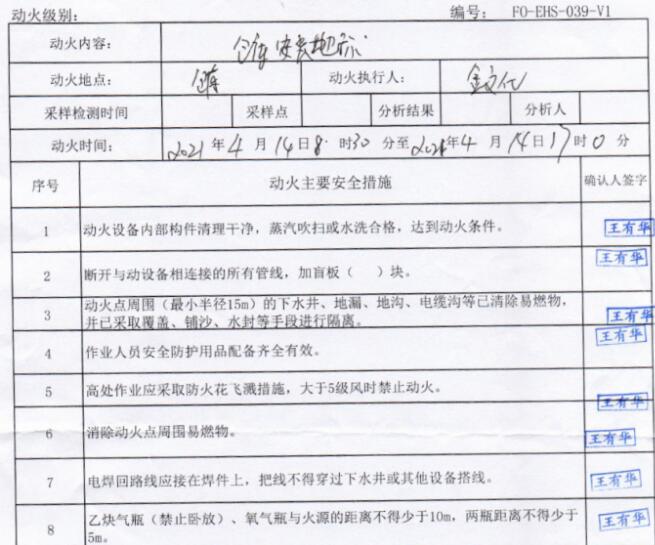 动火级别： 编号： FO-EHS-039-V1
动火内容： 仓库安装地标
动火地点： 仓库 动火执行人： 金文亿
采样检测时间 采样点 分析结果 分析人
动火时间： 2021年4月14日8时30分至2021年4月14日17时0分
序号 动火主要安全措施 确认人签字
1 动火设备内部构件清理干净，蒸汽吹扫或水洗合格，达到动火条件。 王有华
2 断开与动设备相连接的所有管线，加盲板（ ）块。 王有华
3 动火点周围（最小半径15m）的下水井、地漏、地沟、电缆沟等已清除易燃物，
并已采取覆盖、铺沙、水封等手段进行隔离。 王有华
4 作业人员安全防护用品配备齐全有效。 王有华
5 高处作业应采取防火花飞溅措施，大于5级风时禁止动火。 王有华
6 消除动火点周围易燃物。 王有华
7 电焊回路线应接在焊件上，把线不得穿过下水井或其他设备搭线。 王有华
8 乙炔气瓶（禁止卧放）、氧气瓶与火源的距离不得少于10m，两瓶距离不得少于
5m。 王有华